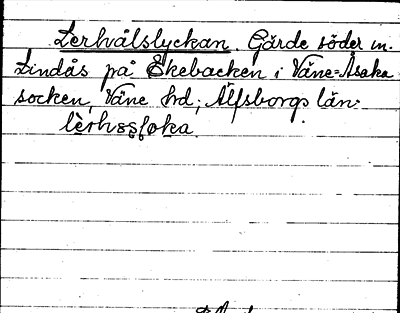 Lerhålslyckan. Gärde söder m.
Lindås på Ekebacken i Väne-Åsaka
socken, Väne hd; Älfsborgs län: